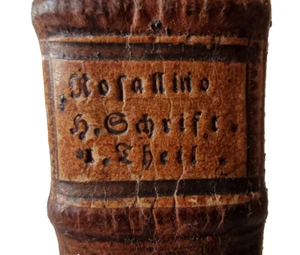 Rosallino
H. Schrift.
1. Theil.